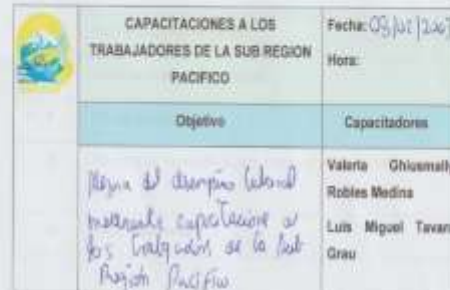 CAPACITACIONES A LOS
TRABAJADORES DE LA SUB REGION
PACIFICO
Fecha:
Hora:
Objetivo
Capacitadores
Mejora del desempeño laboral
mediante capacitaciones a
los trabajadores de la Sub
Región Pacífico
Valeria Ghiusmally
Robles Medina
Luis Miguel Tavara
Grau